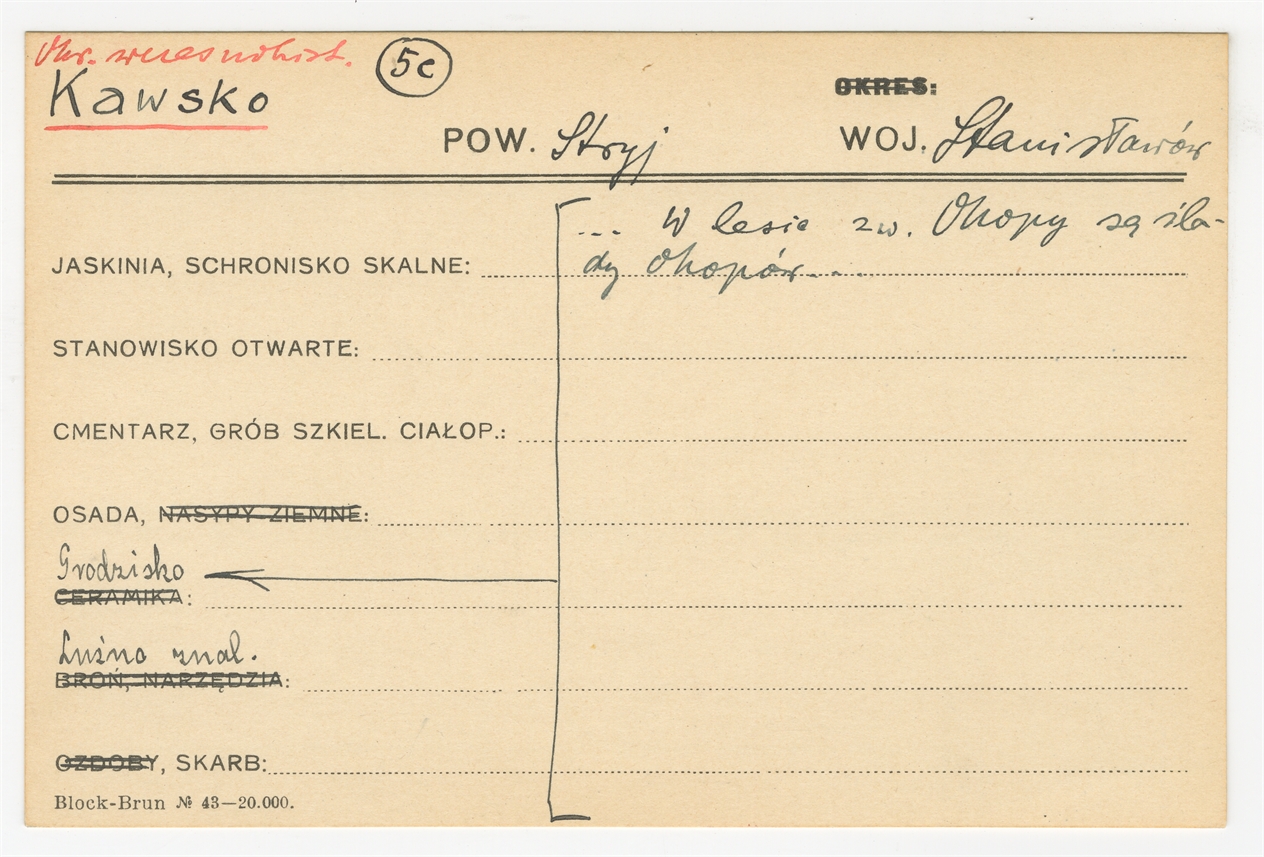 Okr. wczesnohist.
Kawsko
5c
OKRES:
POW. Stryj
WOJ. Stanisławów
... W lesie zw. Okopy są śla-
JASKINIA, SCHRONISKO SKALNE:
dy okopów...
STANOWISKO OTWARTE:
CMENTARZ, GRÓB SZKIEL. CIAŁOP.:
OSADA, NASYPY ZIEMNE:
Grodzisko
CERAMIKA:
Luźno znal.
BROŃ, NARZĘDZIA:
OZDOBY, SKARB:
Block-Brun № 43—20.000.